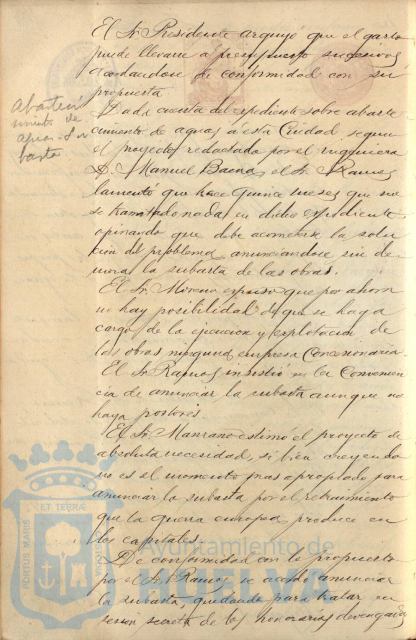 El Sr. Presidente arguyó que el gasto
puede llevarse á presupuestos sucesivos
acordandose de conformidad con su
propuesta.
Abasteci
miento de
aguas. Su
basta
Dada cuenta del expediente sobre abaste
cimiento de aguas á esta Ciudad segun
el proyecto redactado por el ingeniero
D. Manuel Baena, el Sr. Ramos
lamentó que hace quince meses que no
se ha tramitado nada en dicho expediente
opinando que debe acometerse la solu
cion del problema anunciandose sin de
mora la subasta de las obras.
El Sr. Moreno expuso que por ahora
no hay posibilidad de que se haga
cargo de la ejecucion y explotacion de
las obras ninguna empresa Concesionaria.
El Sr. Ramos insistió en la Convenien
cia de anunciar la subasta aunque no
haya postores.
El Sr. Manzano estimó el proyecto de
absoluta necesidad, si bien creyendo
no es el momento mas apropiado para
anunciar la subasta por el retraimiento
que la guerra europea produce en
los capitales.
De conformidad con lo propuesto
por el Sr. Ramos, se acordó anunciar
la subasta, quedando para tratar en
sesion secreta de los honorarios devengados
PORTUS MARIS ET TERRÆ
Ayuntamiento de
HUELVA